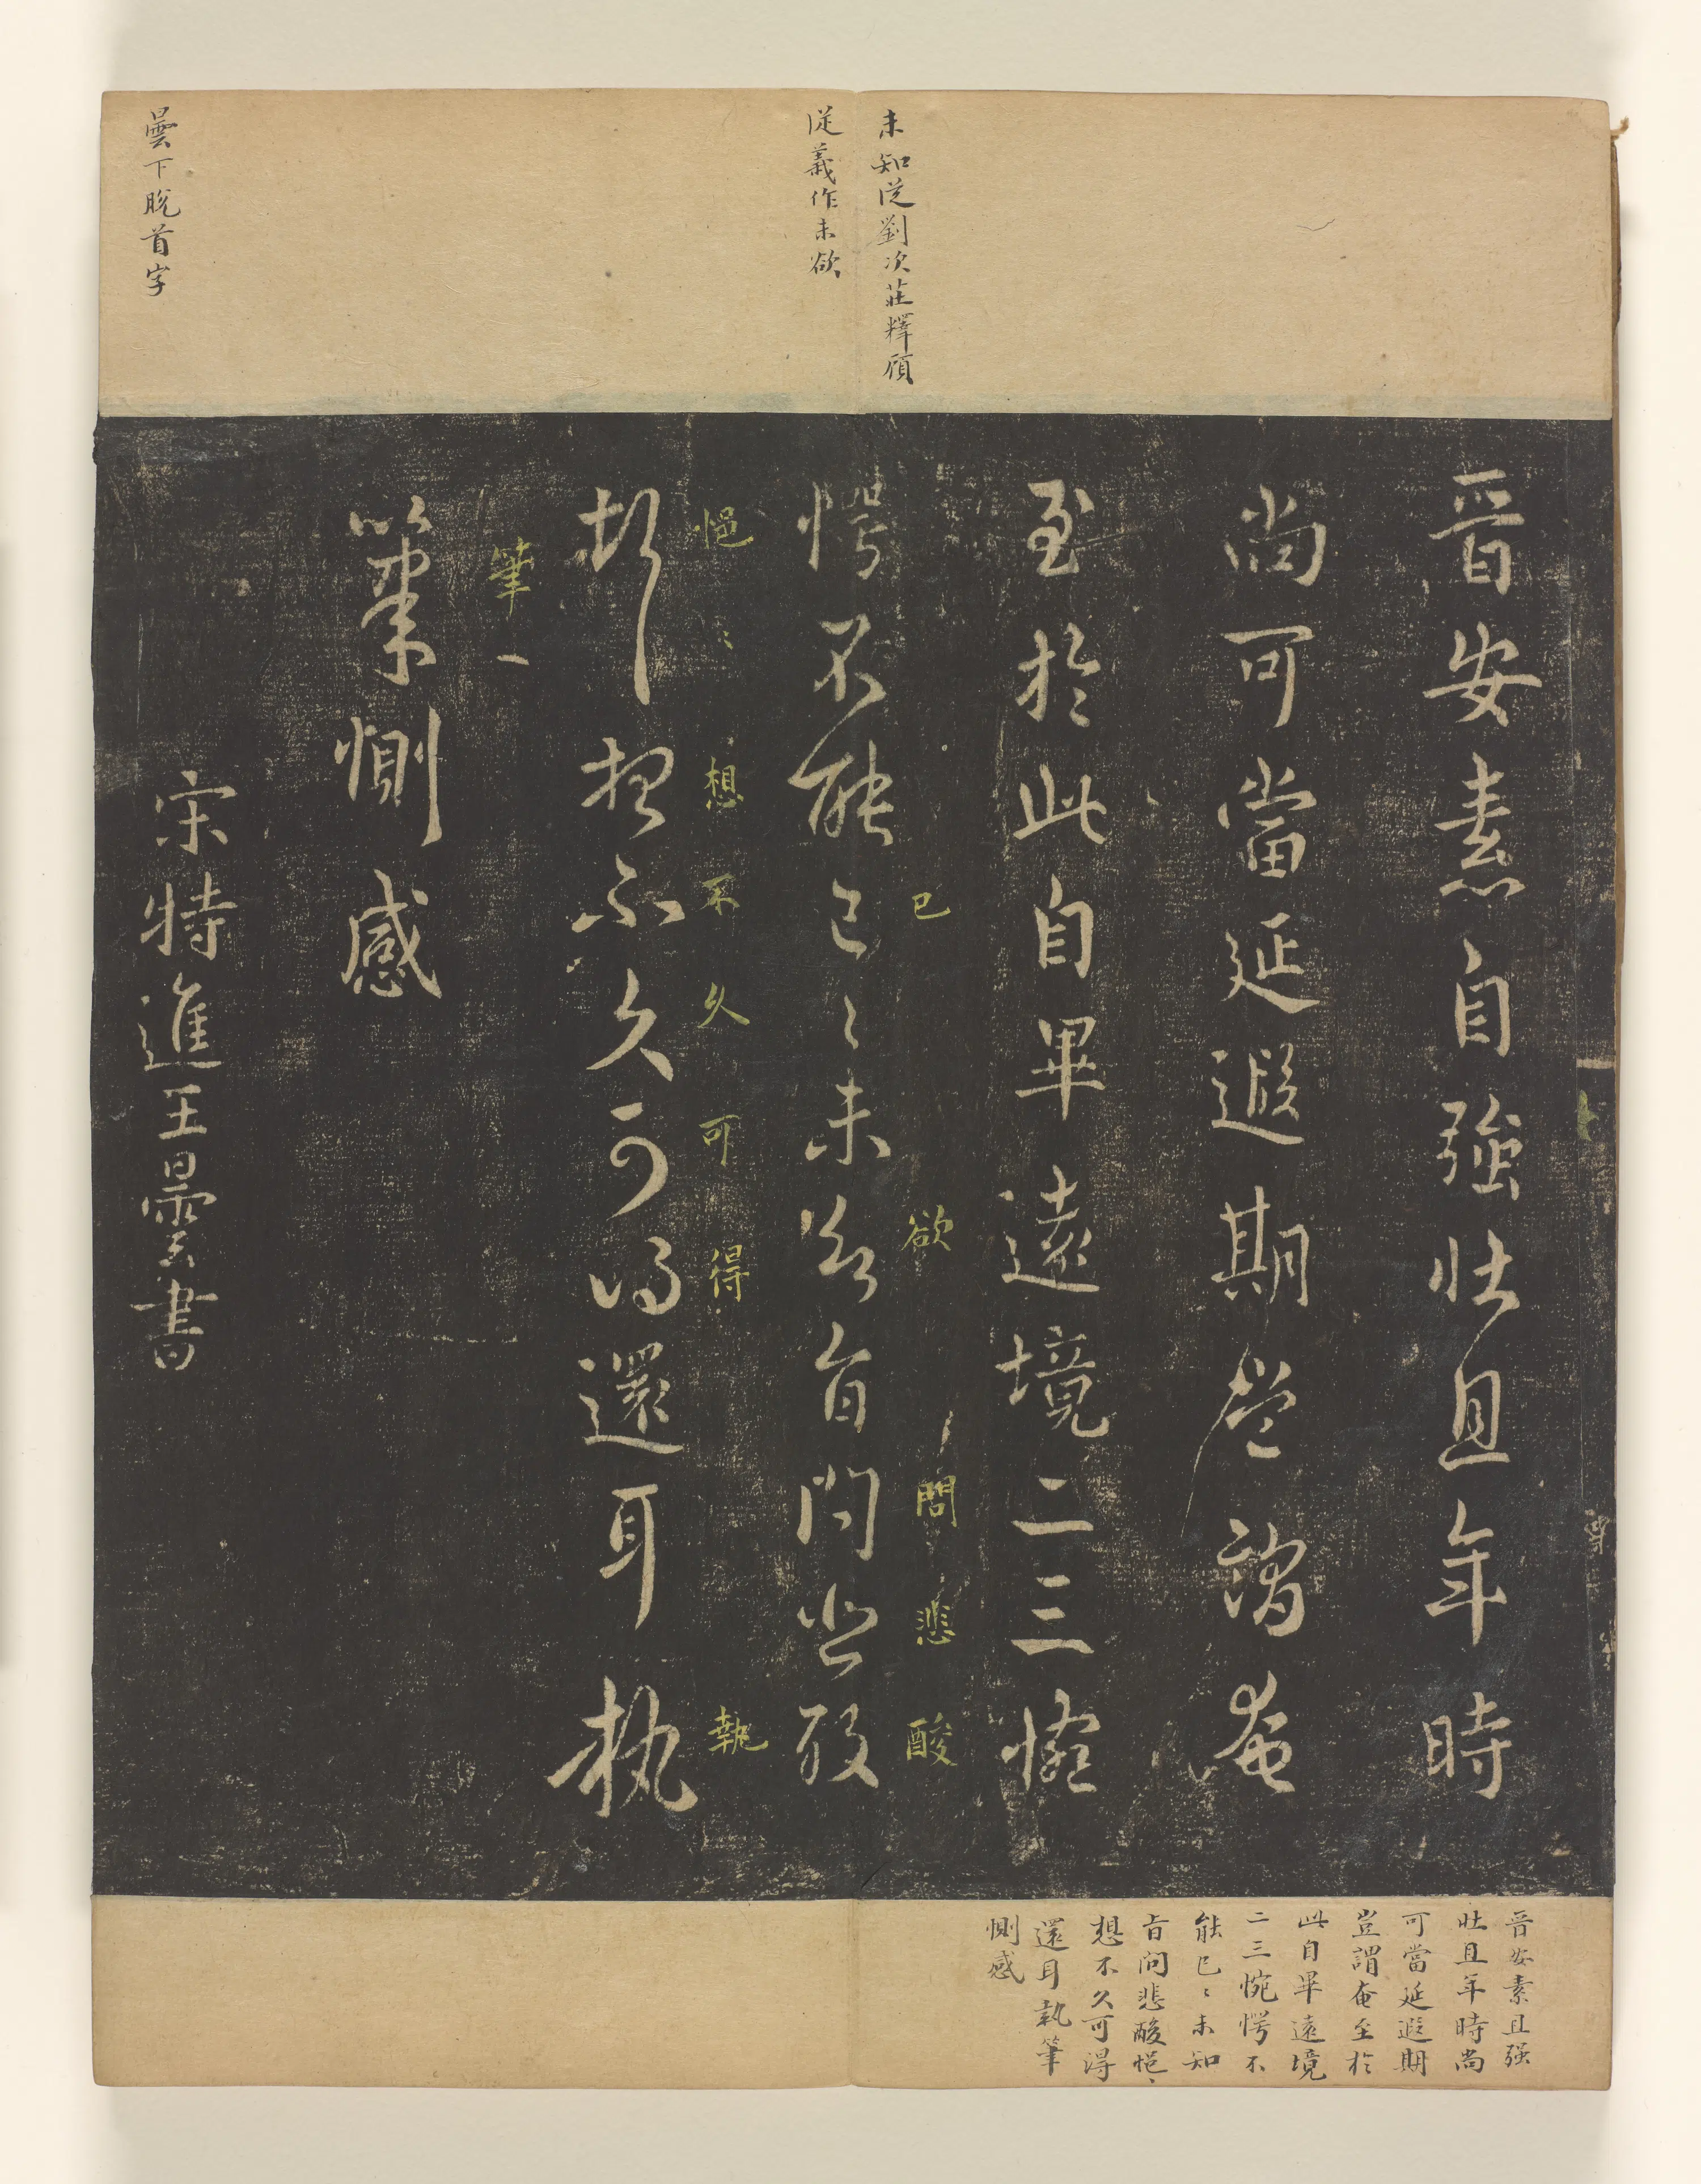 未知從劉次莊釋顧
從義作未欲
曇下脫首字
晉安素自強壯且年時
尚可當延遐期豈謂奄
至於此自畢遠境二三惋
已欲問悲酸
愕不能已〻未知旨問悲酸
悒〻想不久可得執
悒〻想不久可得還耳執
筆
筆惻感
宋特進王曇書
晉安素且强
壯且年時尚
可當延遐期
豈謂奄至於
此自畢遠境
二三惋愕不
能已〻未知
旨問悲酸悒〻
想不久可得
還耳執筆
惻感